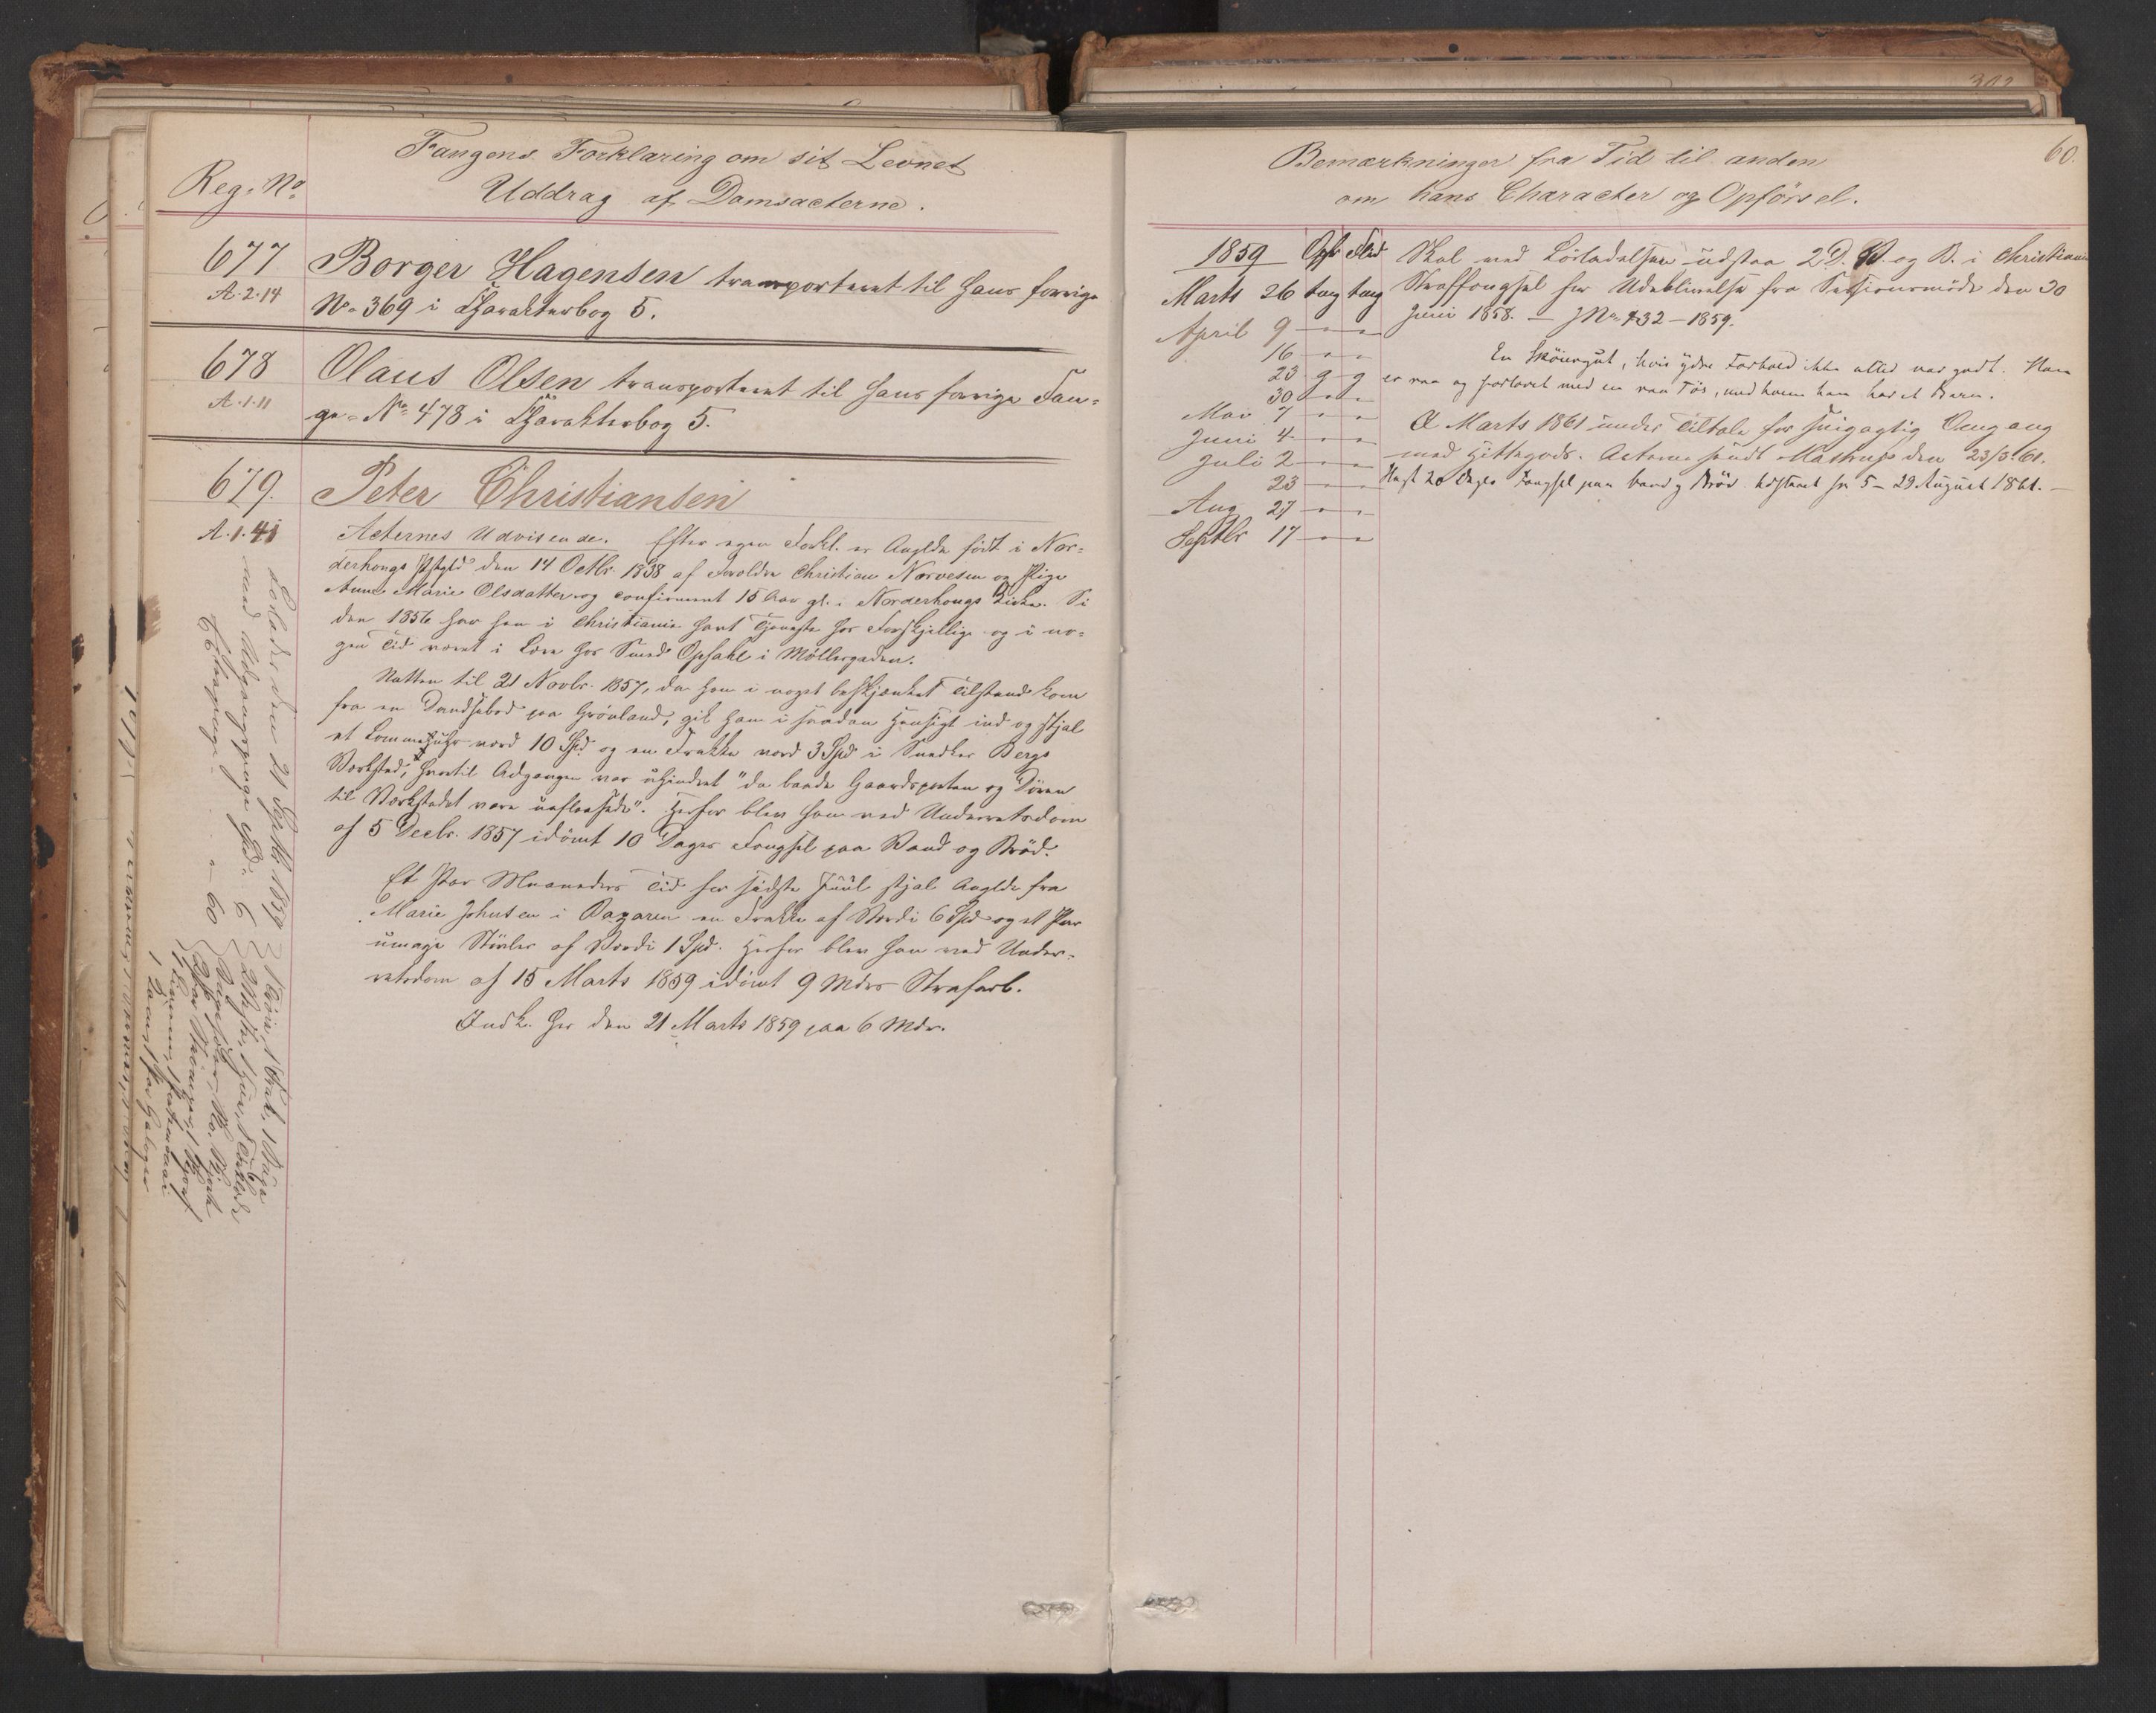 Reg. No.
Fangens Forklaring om sit Levnet
Uddrag af Domsacterne.
677
A. 2. 14
Borger Hagensen transporteret til hans forrige
No. 369 i Charakterbog 5.
678
A. 1. 11
Olaus Olsen transporteret til hans forrige Fan-
ge-No. 478 i Charakterbog 5.
679.
A. 1. 41
Peter Christiansen
Acternes Udvisende. Efter egen Forkl. er Anglde født i Nor-
derhougs Pstgld den 14 Octbr. 1838 af Forældre Christian Narvesen og Pige
Anne Marie Olsdatter og confirmeret 15 Aar gl. i Norderhougs Kirke. Si
den 1856 har han i Christiania havt Tjeneste hos Forskjellige og i no-
gen Tid været i Lære hos Smed Opsahl i Møllergaden.
Natten til 21 Novbr. 1857, da han i noget beskjænket Tilstand kom
fra en Dandsebod paa Grønland, gik han i saadan Hensigt ind og stjal
et Lommeuhr værd 10 Spd og en Frakke værd 3 Spd i Snedker Bergs
Værksted, hvortil Adgangen var uhindret "da baade Gaardsporten og Døren
til Værkstedet vare uaflaasede". Herfor blev han ved Underretsdom
af 5 Decbr. 1857 idømt 10 Dages Fængsel paa Vand og Brød.
Et Par Maaneders Tid før sidste Juul stjal Anglde fra
Marie Johnsen i Bazaren en Frakke af Værdi 6 Spd og et Par
umage Støvler af Værdi 1 Spd. Herfor blev han ved Under-
retsdom af 15 Marts 1859 idømt 9 Mdrs Strafarb.
Indk. her den 21 Marts 1859 paa 6 Mdr.
Løsladt den 21 Septbr. 1859
med Udgangspenge Spd. 6
60
1 Par Galoger
60.
Bemærkninger fra Tid til anden
om hans Character og Opførsel.
1859 Opf Flid
Marts 26 tmg tmg
April 9 " "
16 " "
23 g g
30 " "
Mai 7 " "
Juni 4 " "
Juli 2 " "
23 " "
Aug 27 " "
Septbr 17 " "
Skal ved Løsladelsen udstaa 2 D. V. og B. i Christiania
Straffængsel for Udeblivelse fra Sessionsmøde den 30
Juni 1858. — J No. 432 – 1859.
En Skøiergut, hvis ydre Forhold ikke altid var godt. Han
er raa og forlovet med en raa Tøs, med hvem han har et Barn.
I Marts 1861 under Tiltale for svigagtig Omgang
med Hittegods. Acterne sendt den 23/3 61.
20 Dages Fængsel paa Vand og Brød udstaaet fra 5 – 29 August 1861. —